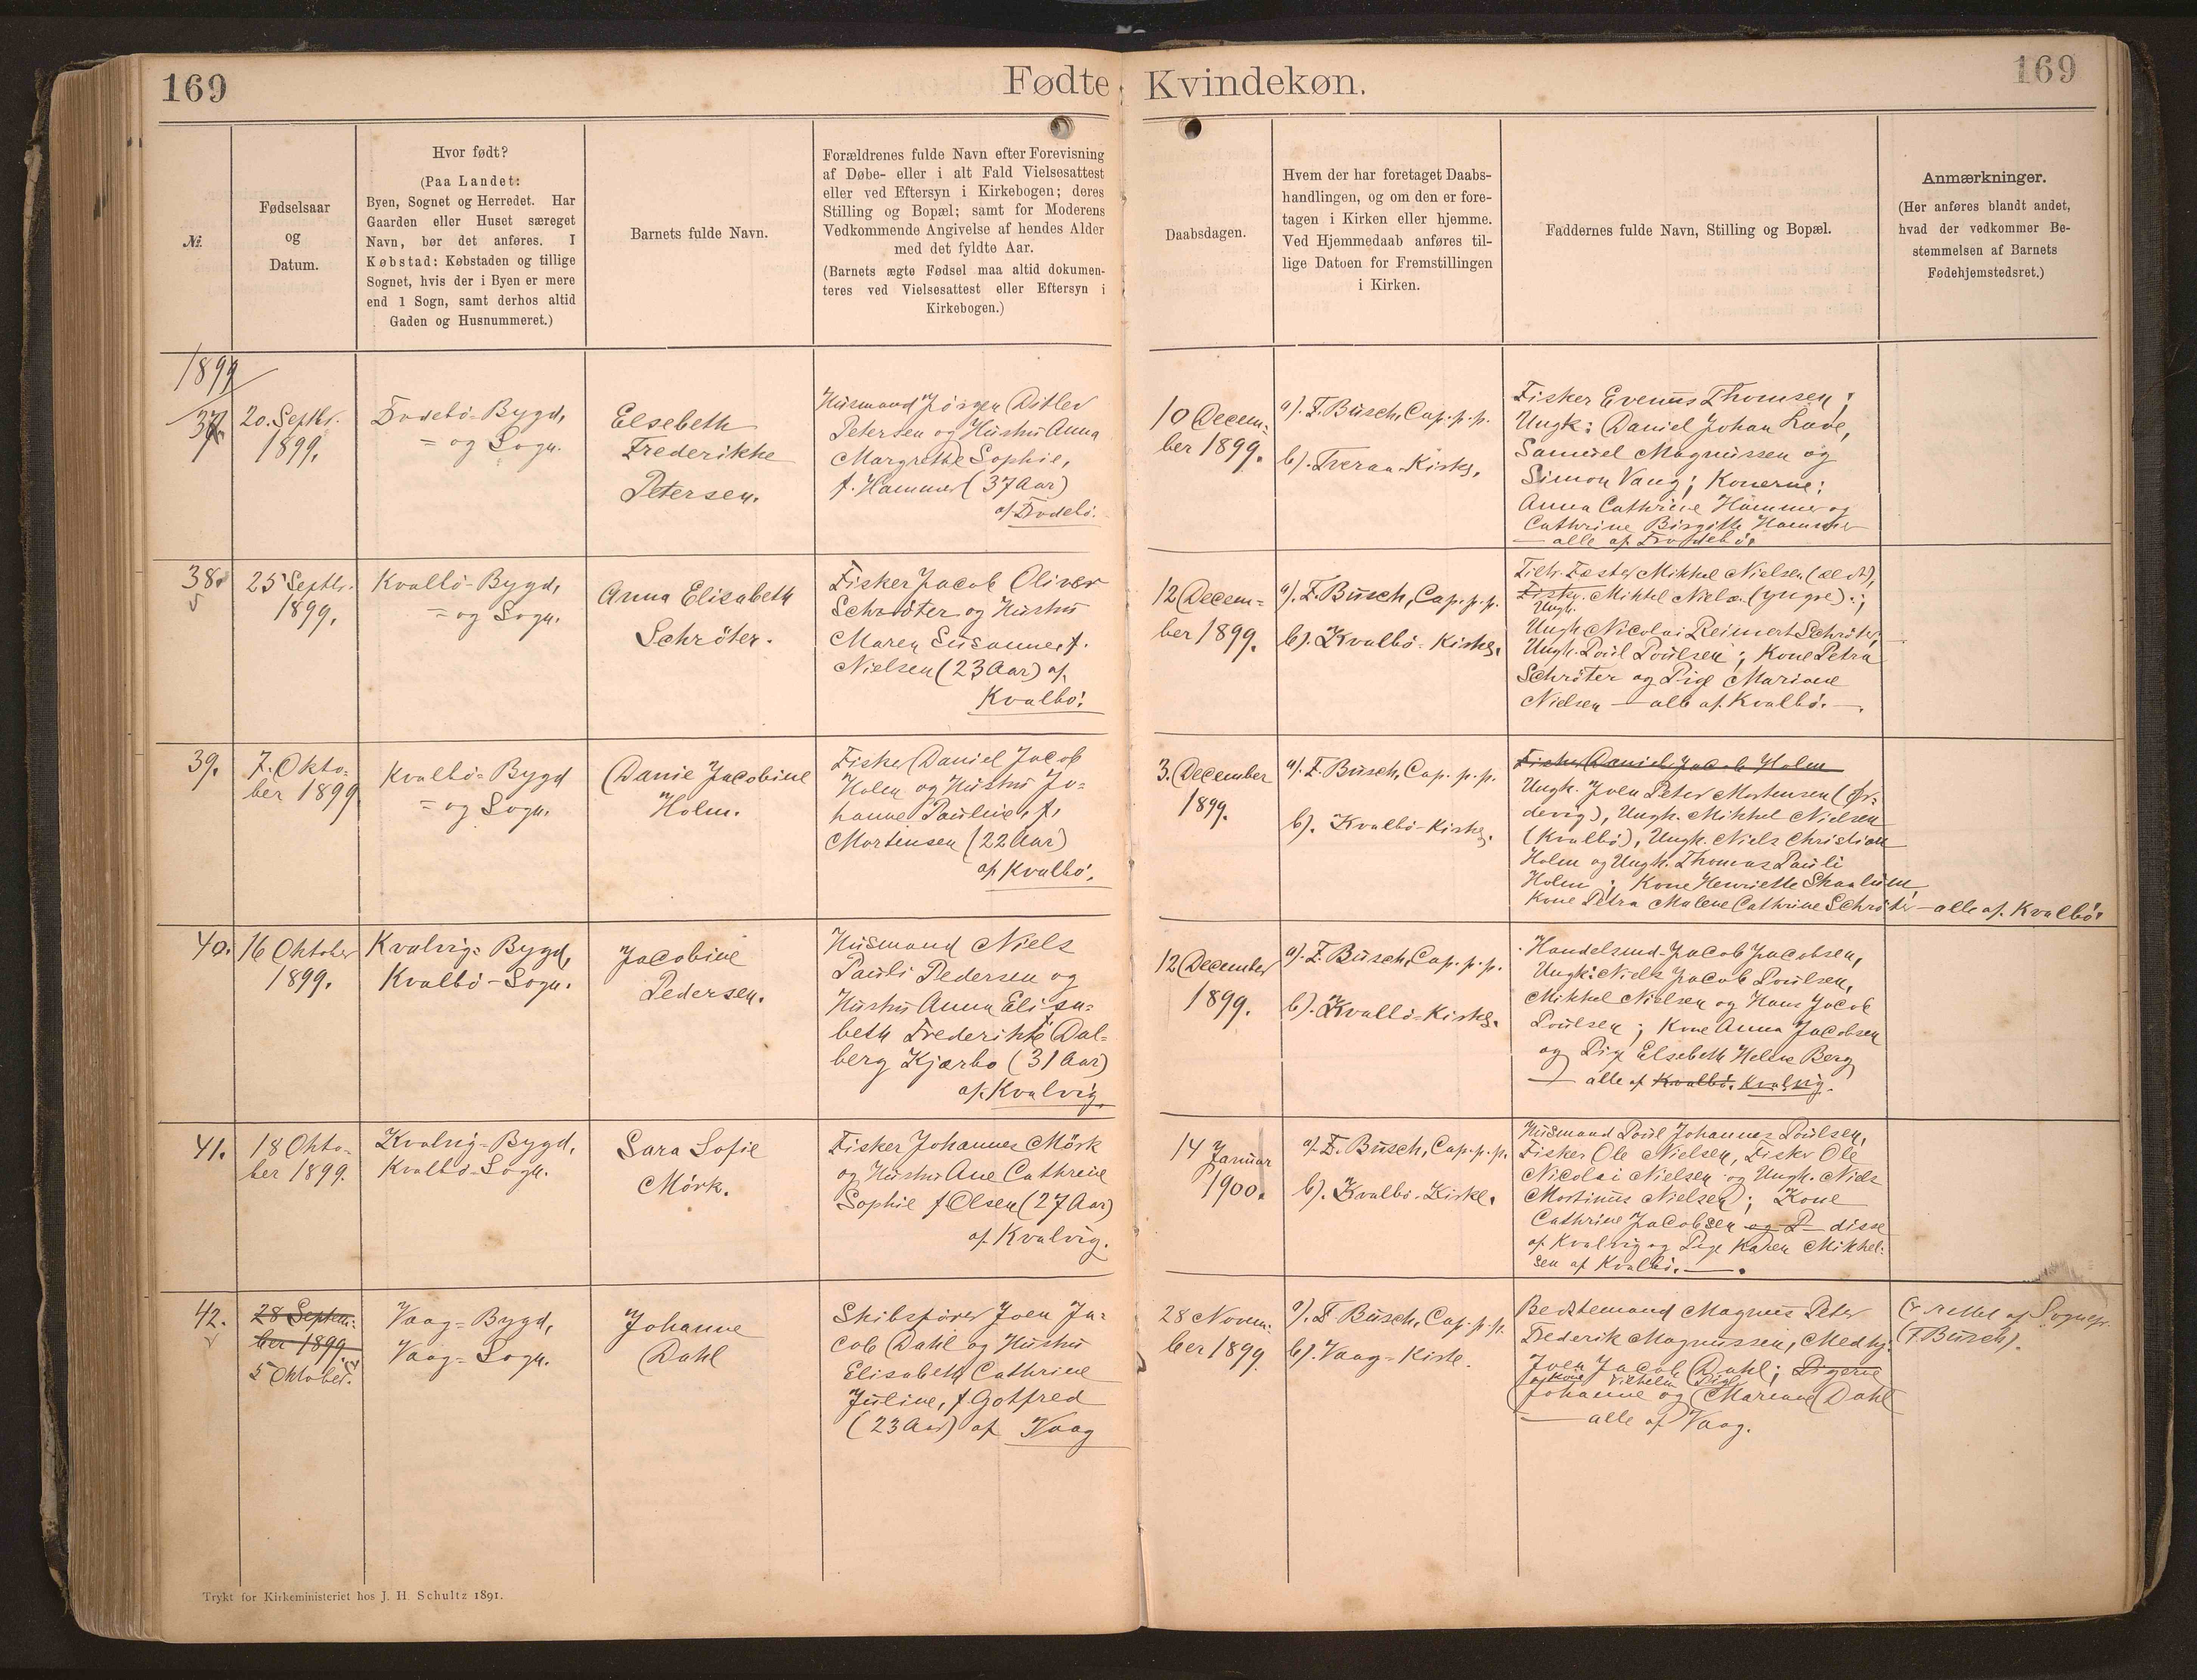 169
Fødte Kvindekøn.
169
№.
Fødselsaar
og
Datum.
Hvor født?
(Paa Landet:
Byen, Sognet og Herredet. Har
Gaarden eller Huset særeget
Navn, bør det anføres. I
Købstad: Købstaden og tillige
Sognet, hvis der i Byen er mere
end 1 Sogn, samt derhos altid
Gaden og Husnummeret.)
Barnets fulde Navn.
Forældrenes fulde Navn efter Forevisning
af Døbe- eller i alt Fald Vielsesattest
eller ved Eftersyn i Kirkebogen; deres
Stilling og Bopæl; samt for Moderens
Vedkommende Angivelse af hendes Alder
med det fyldte Aar.
(Barnets ægte Fødsel maa altid dokumen-
teres ved Vielsesattest eller Eftersyn i
Kirkebogen.)
Daabsdagen.
Hvem der har foretaget Daabs-
handlingen, og om den er fore-
tagen i Kirken eller hjemme.
Ved Hjemmedaab anføres til-
lige Datoen for Fremstillingen
i Kirken.
Faddernes fulde Navn, Stilling og Bopæl.
Anmærkninger.
(Her anføres blandt andet,
hvad der vedkommer Be-
stemmelsen af Barnets
Fødehjemstedsret.)
1899
37.
20. Septbr.
1899.
Frodebö-Bygd,
= og Sogn.
Elsebeth
Frederikke
Petersen.
Husmand Jörgen Ditlev
Petersen og Hustru Anna
Margrethe Sophie,
f. Hammer (37 Aar)
af Frodebö.
10 Decem-
ber 1899.
a). F. Busch, Cap. p. p.
b). Tveraa-Kirke.
Fisker Evenus Thomsen;
Ungk: Daniel Johan Lave,
Samuel Magnussen og
Simon Vang; Konerne:
Anna Cathrine Hammer og
Cathrine Birgitte Hammer
— alle af Frodebö.
38.
25 Septbr.
1899.
Kvalbö-Bygd,
= og Sogn.
Anna Elisabeth
Schröter.
Fisker Jacob Oliver
Schröter og Hustru
Maren Susanne, f.
Nielsen (23 Aar) af
Kvalbö.
12 Decem-
ber 1899.
a). F. Busch, Cap. p. p.
b). Kvalbö-Kirke.
Mikkel Nielsen (ældr),
Fisker. Mikkel Niels. (yngre).;
Ungk.
Ungk. Nicolai Reinert Schröter,
Ungk. Poul Poulsen; Kone Petra
Schröter og Pige Mariane
Nielsen — alle af Kvalbö. —.
39.
7. Okto-
ber 1899
Kvalbö-Bygd
= og Sogn.
Danie Jacobine
Holm.
Fisker Daniel Jacob
Holm og Hustru Jo-
hanne Pauline, f.
Mortensen (22 Aar)
af Kvalbö.
3. December
1899.
a). F. Busch, Cap. p. p.
b). Kvalbö-Kirke.
Fisker Daniel Jacob Holm
Ungk. Joen Peter Mortensen (Ör-
devig), Ungk. Mikkel Nielsen
(Kvalbö), Ungk. Niels Christian
Holm og Ungk. Thomas Pauli
Holm; Kone Henriette Skaalum,
Kone Petra Malene Cathrine Schröter — alle af Kvalbö.
40.
16 Oktober
1899.
Kvalvig-Bygd,
Kvalbö-Sogn.
Jacobine
Pedersen.
Husmand Niels
Pauli Pedersen og
Hustru Anna Elisa-
beth Frederikke Dal-
berg Kjærbo (31 Aar)
af Kvalvig.
12 December
1899.
a). F. Busch, Cap. p. p.
b). Kvalbö-Kirke.
Handelsmd. Jacob Jacobsen,
Ungk: Niels Jacob Poulsen,
Mikkel Nielsen og Hans Jacob
Poulsen; Kone Anna Jacobsen
og Pige Elsebeth Helene Berg
— alle af Kvalbö. Kvalvig.
41.
18 Okto-
ber 1899.
Kvalvig-Bygd,
Kvalbö-Sogn.
Sara Sofie
Mörk.
Fisker Johannes Mörk
og Hustru Ane Cathrine
Sophie f Olsen (27 Aar)
af Kvalvig.
14 Januar
1900.
a). F. Busch, Cap. p. p.
b). Kvalbö-Kirke.
Husmand Poul Johannes Poulsen,
Fisker Ole Nielsen, Fisker Ole
Nicolai Nielsen og Ungk. Niels
Mortinus Nielsen; Kone
Cathrine Jacobsen og P disse
af Kvalvig og Pige Karen Mikkel-
sen af Kvalbö. —.
42.
28 Septem-
ber 1899
5 Oktober.
Vaag-Bygd,
Vaag-Sogn.
Johanne
Dahl
Skibsförer Joen Ja-
cob Dahl og Hustru
Elisabeth Cathrine
Juline, f Gotfred
(23 Aar) af Vaag
28 Novem-
ber 1899.
a). F. Busch, Cap. p. p.
b). Vaag-Kirke.
Bedstemand Magnus Peter
Frederik Magnussen, Medhj.
Joen Jacob Dahl; Pigerne
og Kone Vilhelm Pige
Johanne og Mariane Dahl
— alle af Vaag.
rettet af Sognepr.
(F. Busch).
Trykt for Kirkeministeriet hos J. H. Schultz 1891.